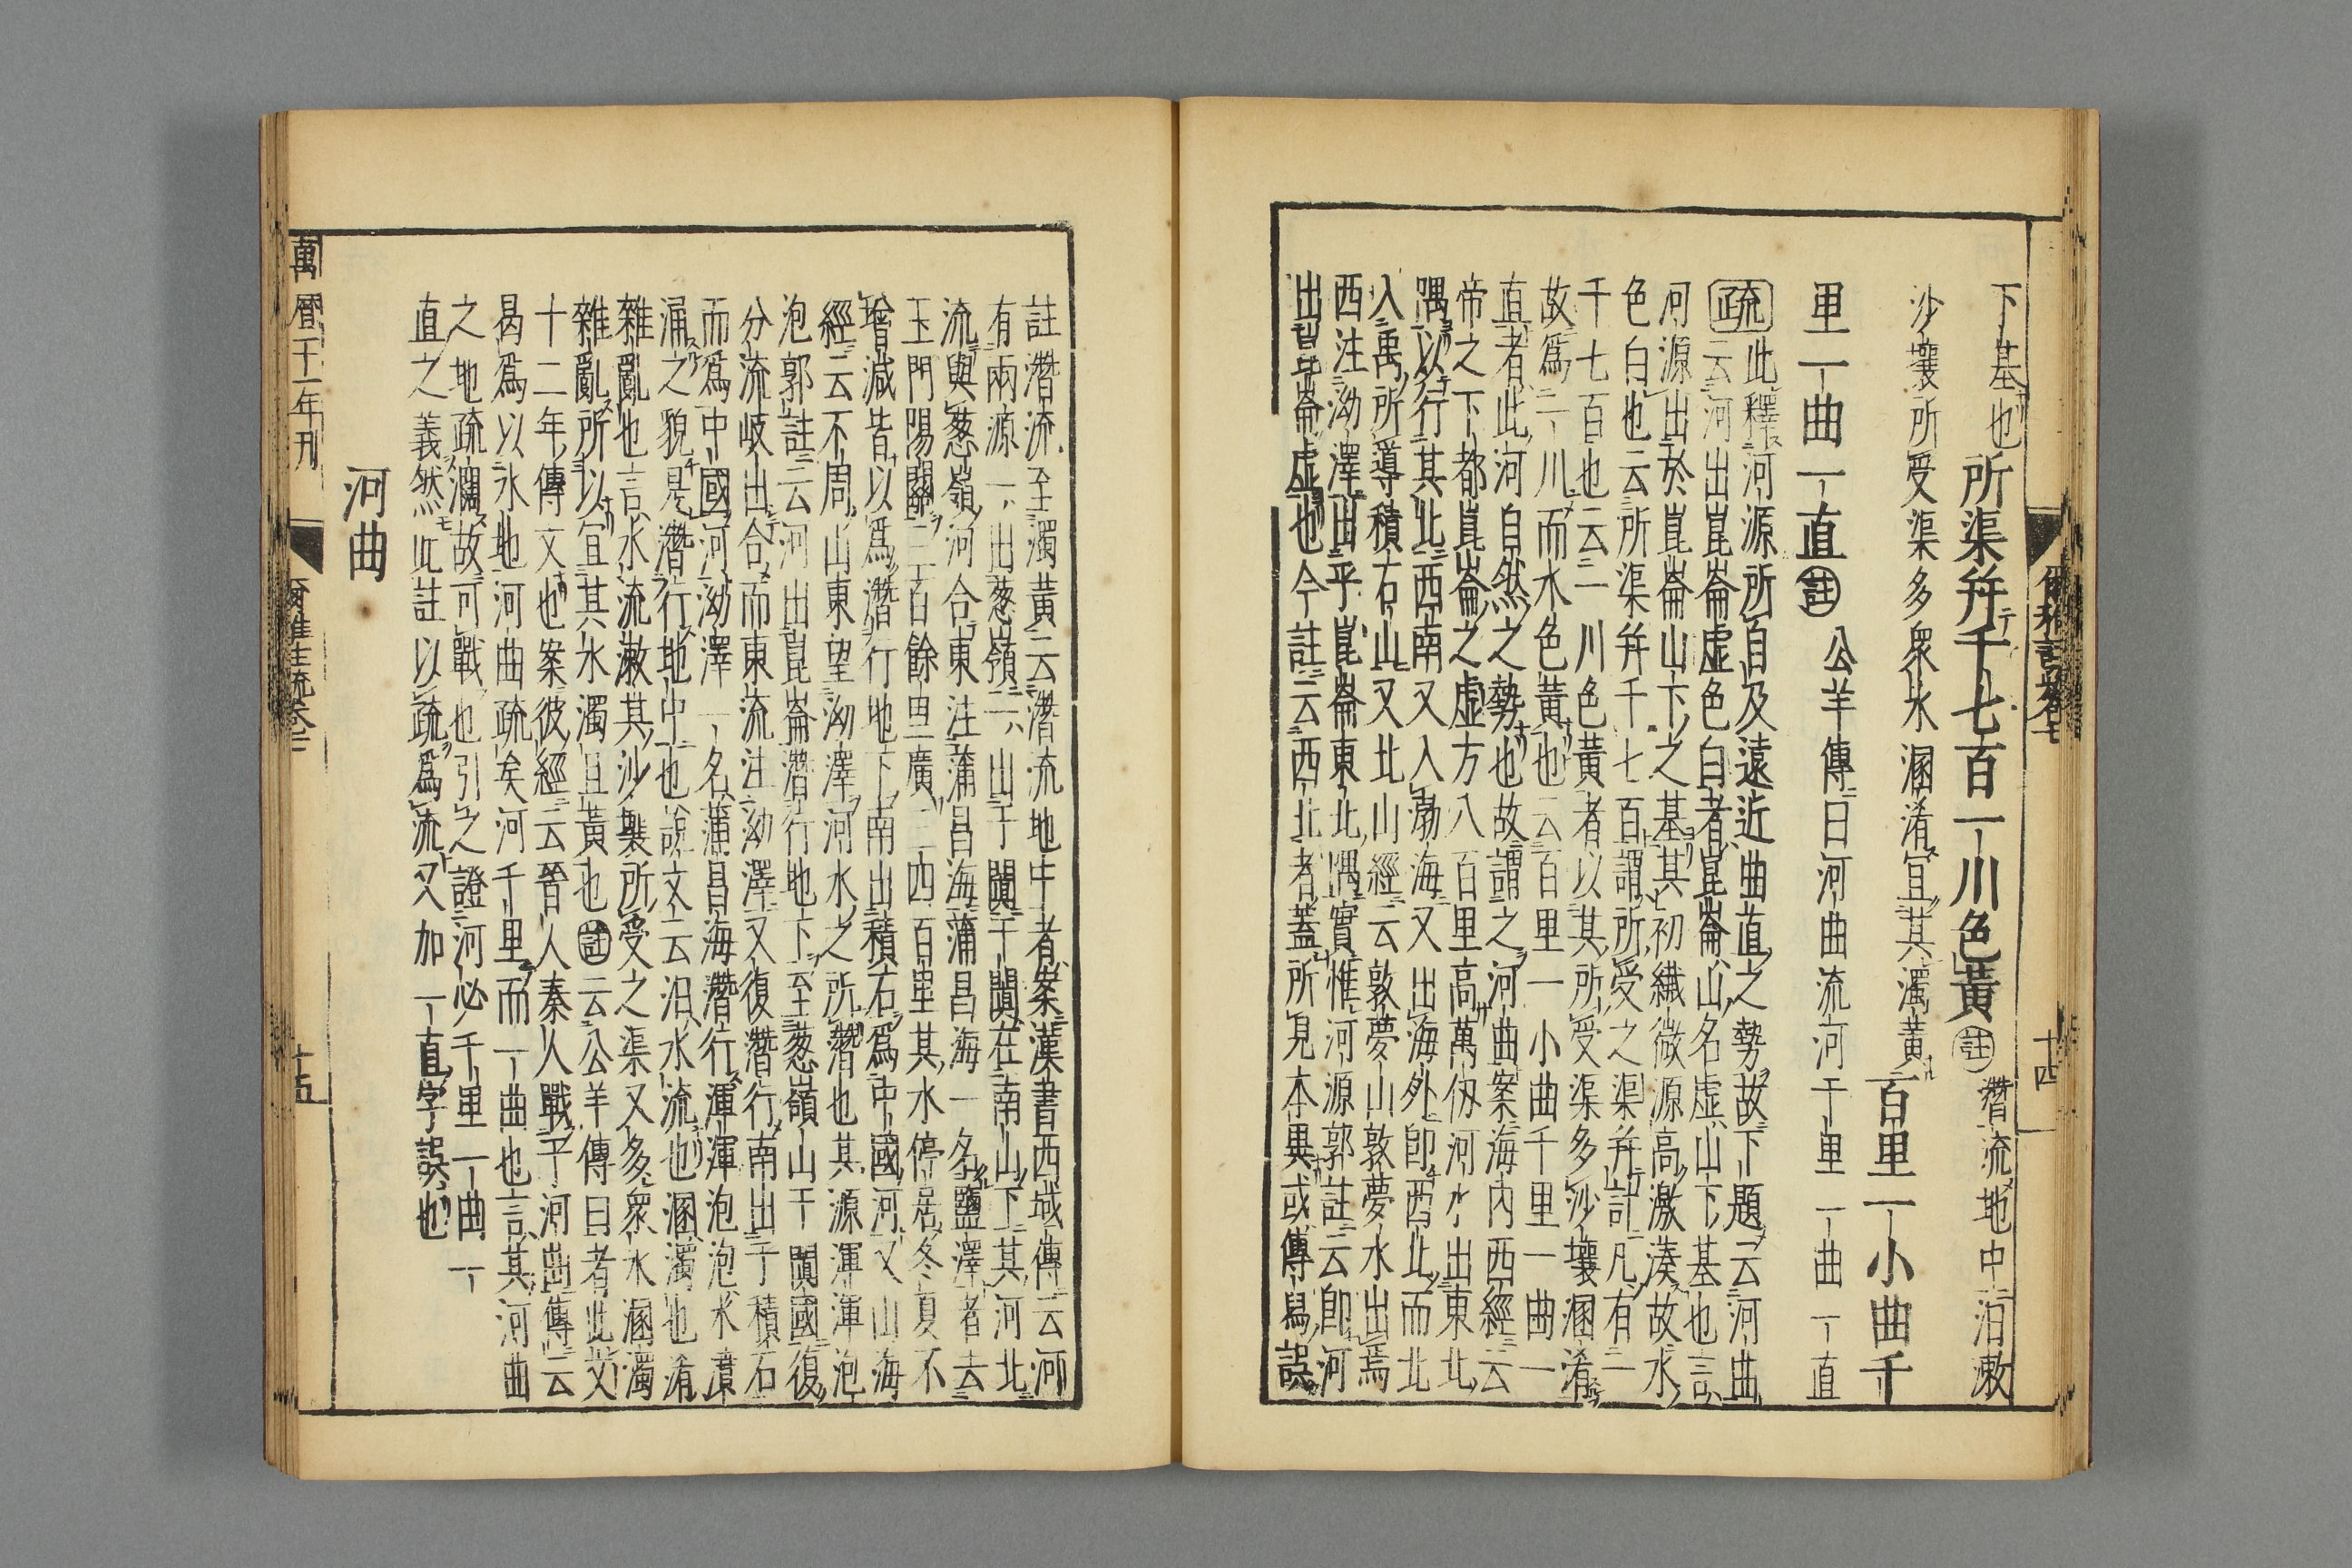 爾雅註疏卷七
十四
下基也所渠并千七百一川色黃註潛流地中汨漱
沙壤所受渠多衆水溷淆宜其濁黃百里一小曲千
里一曲一直註公羊傳曰河曲流河千里一曲一直
疏此釋河源所自及遠近曲直之勢故下題云河曲
云河出崑崙虛色白者崑崙山名虛山下基也言
河源出於崑崙山下之基其初纖微源高激湊故水
色白也云所渠并千七百謂所受之渠并計凡有二
千七百也云一川色黃者以其所受渠多沙壤溷淆
故爲一川而水色黃也云百里一小曲千里一曲一
直者此河自然之勢也故謂之河曲案海內西經云
帝之下都崑崙之虛方八百里高萬仞河水出東北
隅以行其北西南又入渤海又出海外卽西北而北
入禹所導積石山又北山經云敦夢山敦夢水出焉
西注泑澤出乎崑崙東北隅實惟河源郭註云卽河
出崑崙虛也今註云西北者蓋所見本異或傳舄誤
註潛流至濁黃云潛流地中者案漢書西域傳云河
有兩源一出葱嶺一出于闐于闐在南山下其河北
流與葱嶺河合東注蒲昌海蒲昌海一名鹽澤者去
玉門陽關三百餘里廣三四百里其水停居冬夏不
增減皆以爲潛行地下南出積石爲中國河又山海
經云不周山東望泑澤河水之所潛也其源渾渾泡
泡郭註云河出崑崙潛行地下至葱嶺山于闐國復
分流岐出合而東流注泑澤又復潛行南出于積石
而爲中國河泑澤一名蒲昌海潛行渾渾泡泡水濆
漏之貌是潛行地中也說文云汨水流也溷濁也淆
雜亂也言水流漱其沙壤所受之渠又多衆水溷濁
雜亂所以宜其水濁且黃也註云公羊傳曰者此文
十二年傳文也案彼經云晉人秦人戰于河曲傳云
曷爲以水地河曲疏矣河千里而一曲也言其河曲
之地疏瀾故可戰也引之證河必千里一曲一
直之義然此註以疏爲流又加一直字誤也
河曲
萬曆十一年刊
爾雅註疏卷七
十五